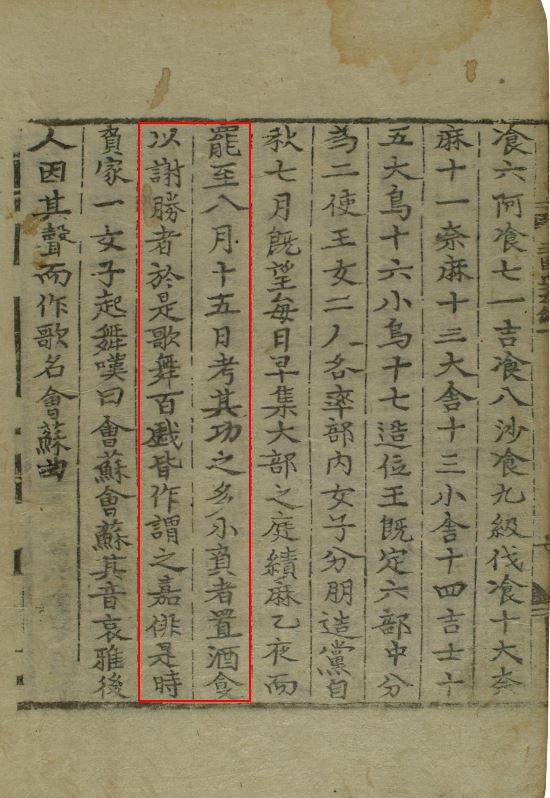 飡六阿飡七一吉飡八沙飡九級伐飡十大奈
麻十一奈麻十三大舍十三小舍十四吉士十
五大烏十六小烏十七造位王既定六部中分
為二使王女二人各率部內女子分朋造黨自
秋七月既望每日早集大部之庭績麻乙夜而
罷至八月十五日考其功之多小負者置酒食
以謝勝者於是歌舞百戱皆作謂之嘉俳是時
負家一女子起舞嘆曰會蘇會蘇其音哀雅後
人因其聲而作歌名會蘇曲